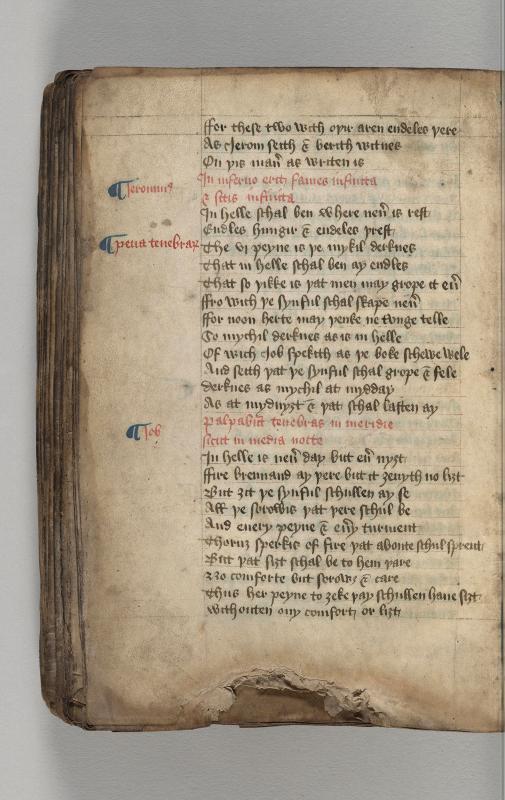 ffor these two with oþir aren endeles þere
As Jerom seith & berith witnes
On þis man as writen is
In inferno erit fames infinita
¶ Jeronimus
& sitis infinita
In helle schal ben where neuer is rest
Endles hungir & endeles þrest
¶ pena tenebrarum
The vi peyne is þe mykil derknes
That in helle schal ben ay endles
That so þikke is þat men may grope it euen
ffro with þe synful schal skape neuer
ffor noon herte may þenke ne tonge telle
So mychil derknes as is in helle
Of wich Job spekith as þe boke schewe wele
And seith þat þe synful schal grope & fele
derknes as mychil at mydday
As at mydnyȝt & þat schal lasten ay
Palpabunt tenebras in meridie
¶ Job
sicut in media nocte
In helle is neuer day but euer nyȝt
ffire brennand ay þere but it ȝeuyth no liȝt
But ȝit þe synful schullen ay se
All þe sorowis þat þere schul be
And euery peyne & euery turment
Thoruȝ sperkis of fire þat aboute schul sprent
But þat siȝt schal be to hem þare
No comforte but sorow & care
Thus her peyne to eke þay schullen haue siȝt
withouten ony comfort or liȝt